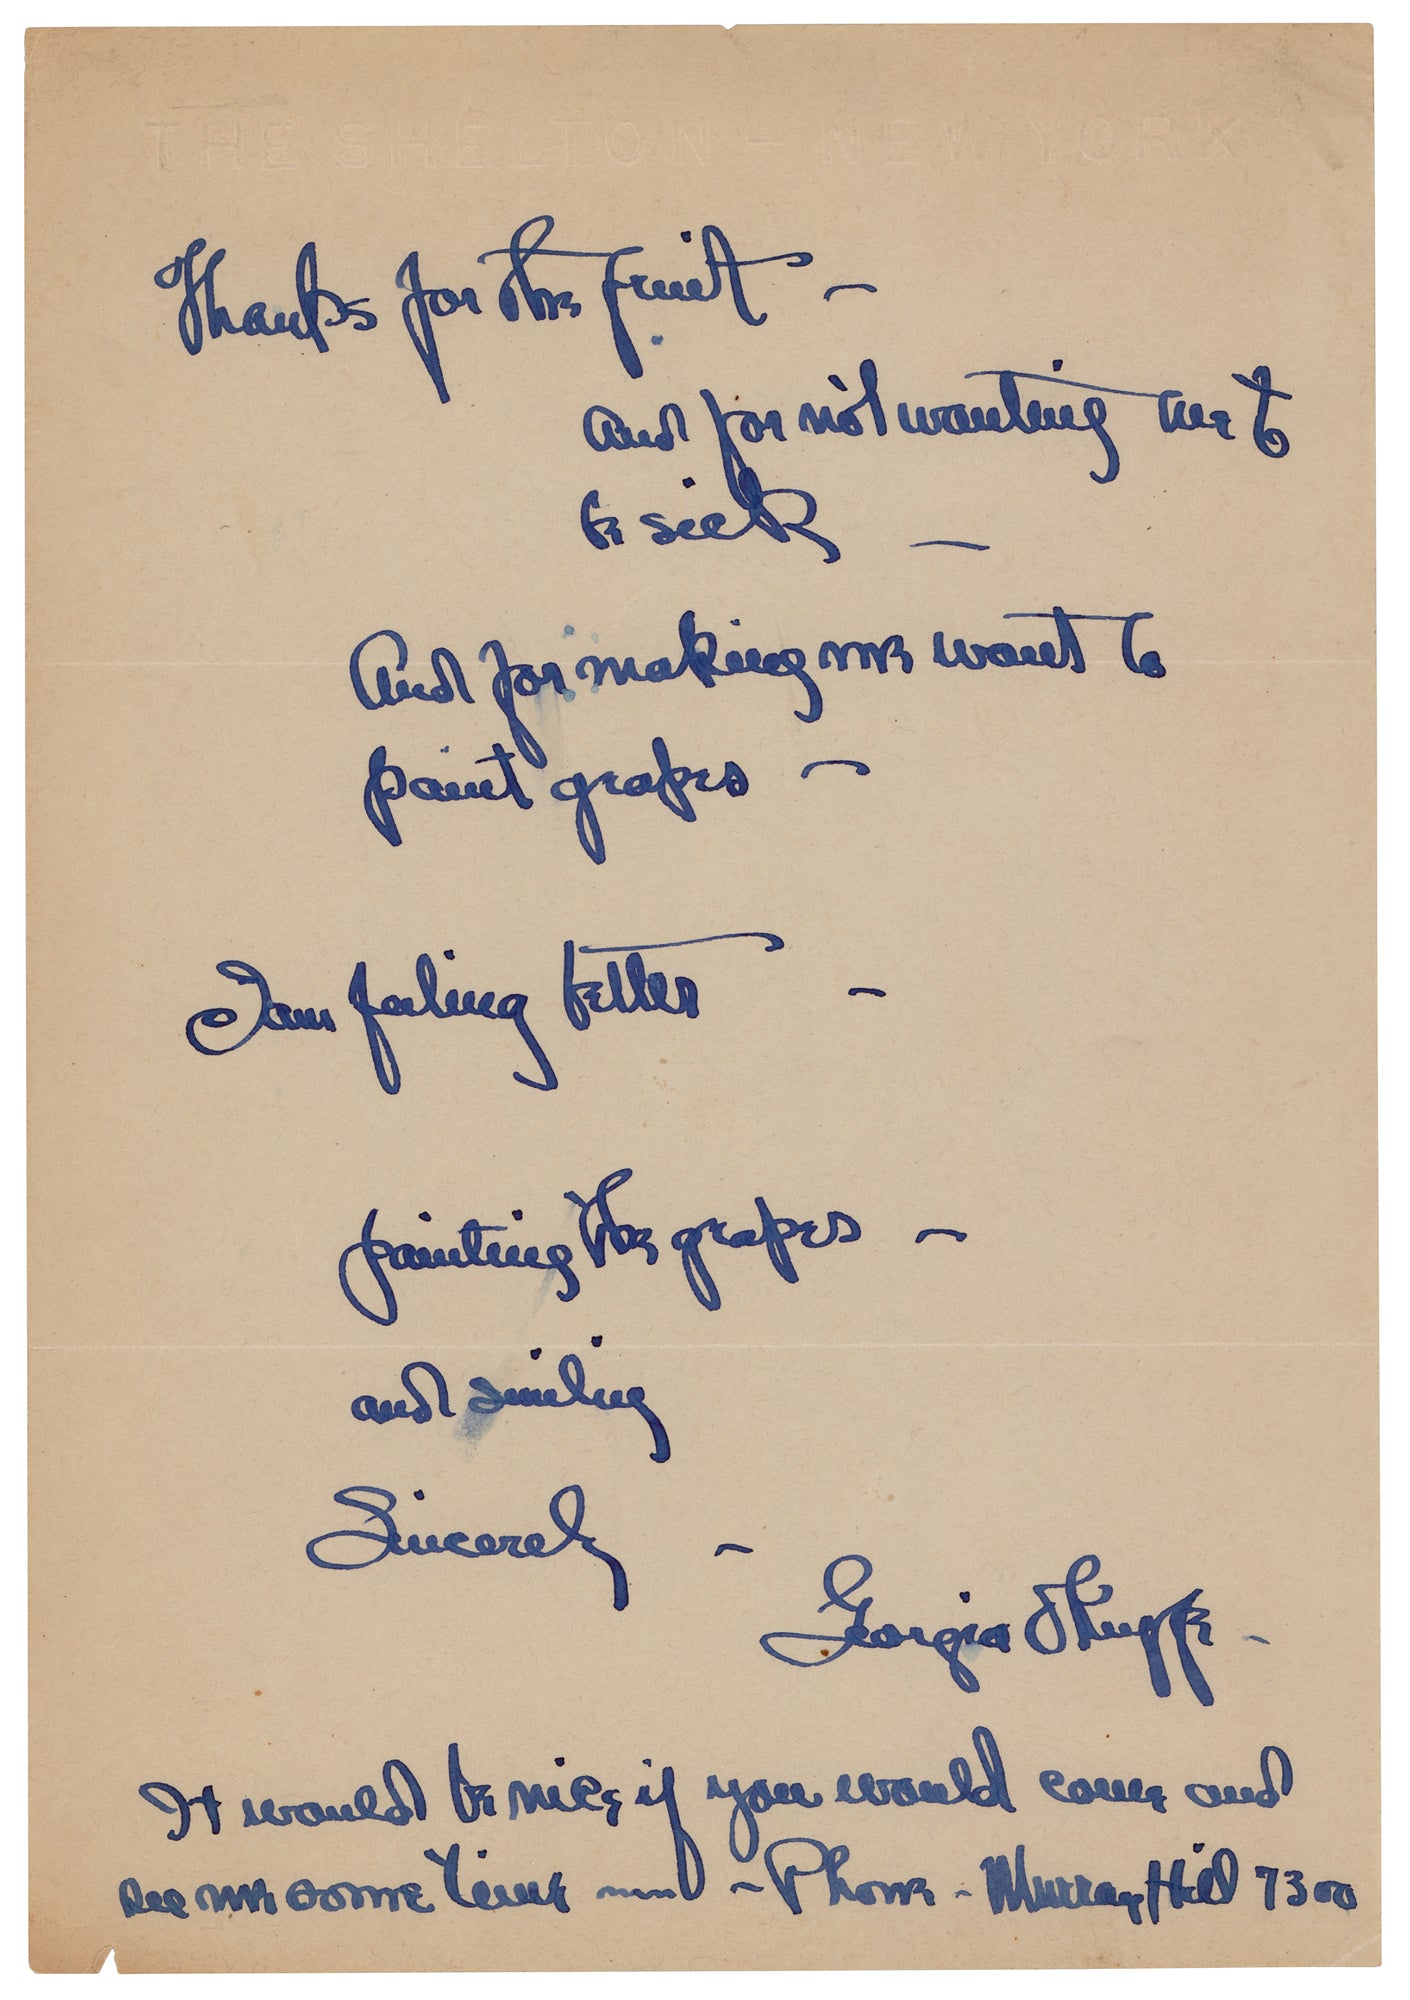 THE SHELTON – NEW YORK
Thanks for the fruit ~
and for not wanting me to
be sick —
And for making me want to
paint grapes ~
I am feeling better ~
painting the grapes ~
and smiling
Sincerely ~
Georgia O'Keeffe –
It would be nice if you would come and
see me some time ~ – Phone – Murray Hill 7300